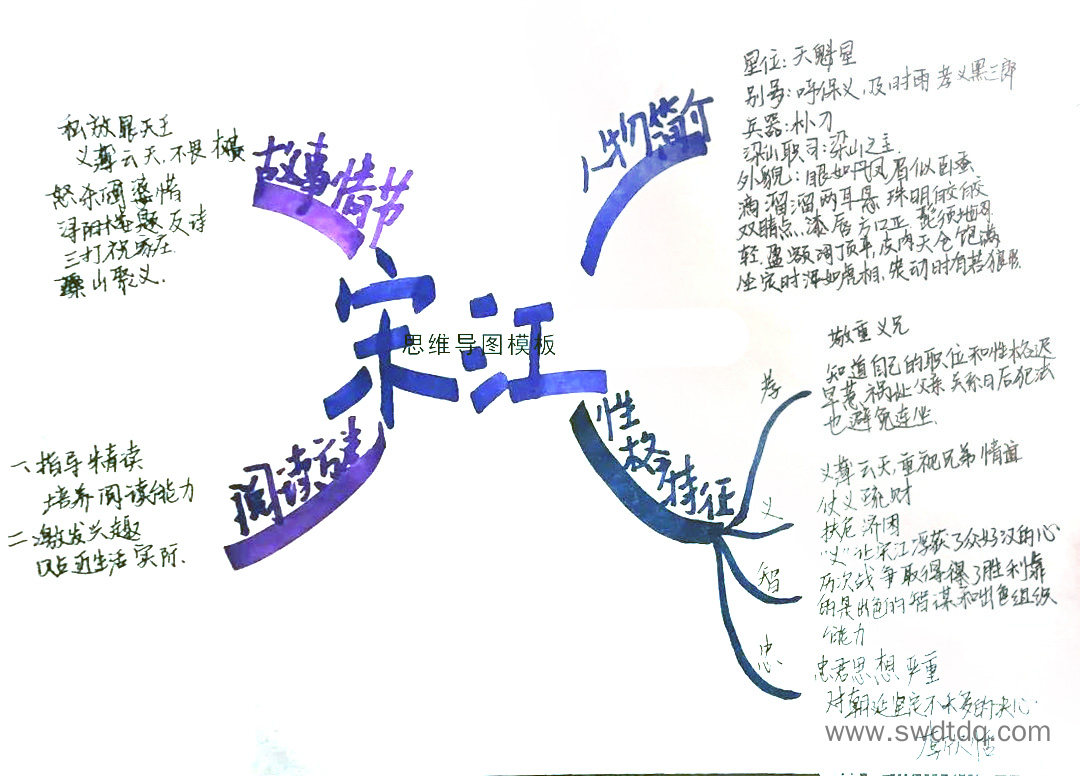 宋江
思维导图模板
人物简介
星位：天魁星
别号：呼保义，及时雨 孝义黑三郎
兵器：朴刀
梁山职司：梁山之主
外貌：眼如丹凤眉似卧蚕
滴溜溜两耳悬珠明皎皎
双睛点漆唇方口正，髭须地阁
轻盈额阔顶平，皮肉天仓饱满
坐定时浑如虎相，走动时有若狼形
性格特征
孝
敬重义兄
知道自己的职位和性格迟
早惹祸让父亲关系日后犯法
也避免连坐
义
义薄云天，重视兄弟情谊
仗义疏财
扶危济困
"义"让宋江俘获了众好汉的心
智
两次战争取得得了胜利靠
的是出色的智谋和出色组织
能力
忠
忠君思想严重
对朝廷坚定不移的决心
故事情节
私放晁天王
义薄云天，不畏权
怒杀阎婆惜
浔阳楼题反诗
三打祝家庄
梁山聚义
阅读方法
一、指导精读
培养阅读能力
二、激发兴趣
贴近生活实际.
www.swdtdq.com